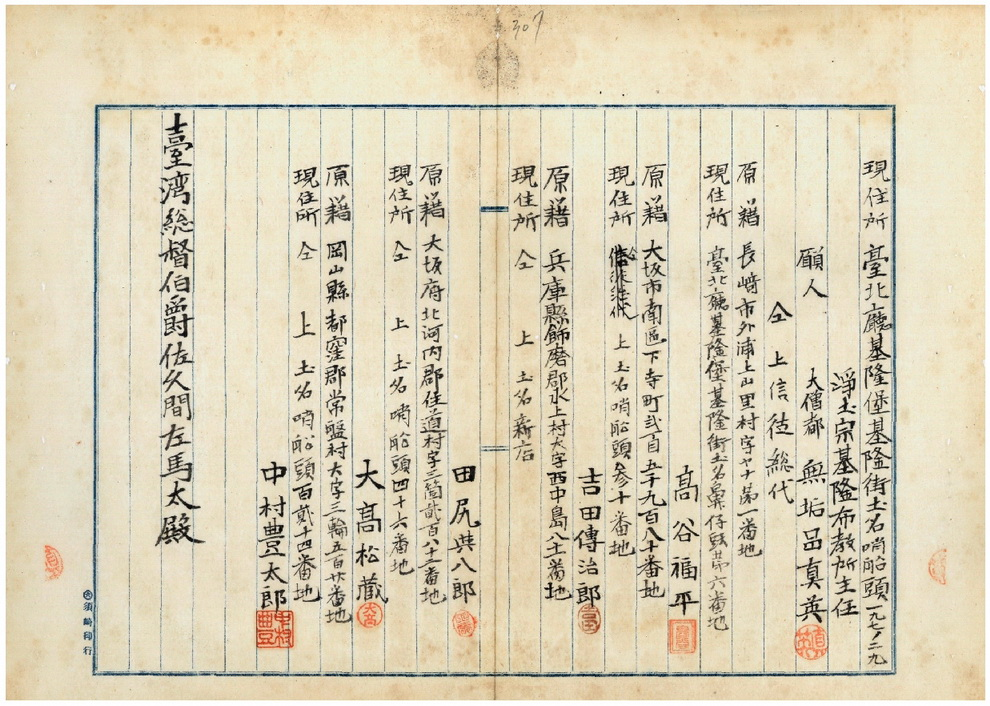 307
現住所 臺北廳基隆堡基隆街土名哨船頭一九七ノ二九
淨土宗基隆布教所主任
願人 大僧都 無垢品真英
仝上信徒総代
原籍 長﨑市外浦上山里村字
現住所 臺北廳基隆堡基隆街土名鼻仔頭第六番地
髙谷福平
原籍 大坂市南區下寺町弐百五十九百八十番地
現住所 仝上土名哨船頭参十番地
吉田傳治郎
原籍 兵庫縣飾磨郡水上村大字西中島八十番地
現住所 仝上土名新店
田尻與八郎
原籍 大坂府北河内郡住道村字三箇貳百八十二番地
現住所 仝上土名哨船頭四十六番地
大髙松蔵
原籍 岡山縣都窪郡常盤村大字三輪五百廿番地
現住所 仝上土名哨船頭百貮十四番地
中村豊太郎
臺湾総督伯爵佐久間左馬太殿
須﨑印行